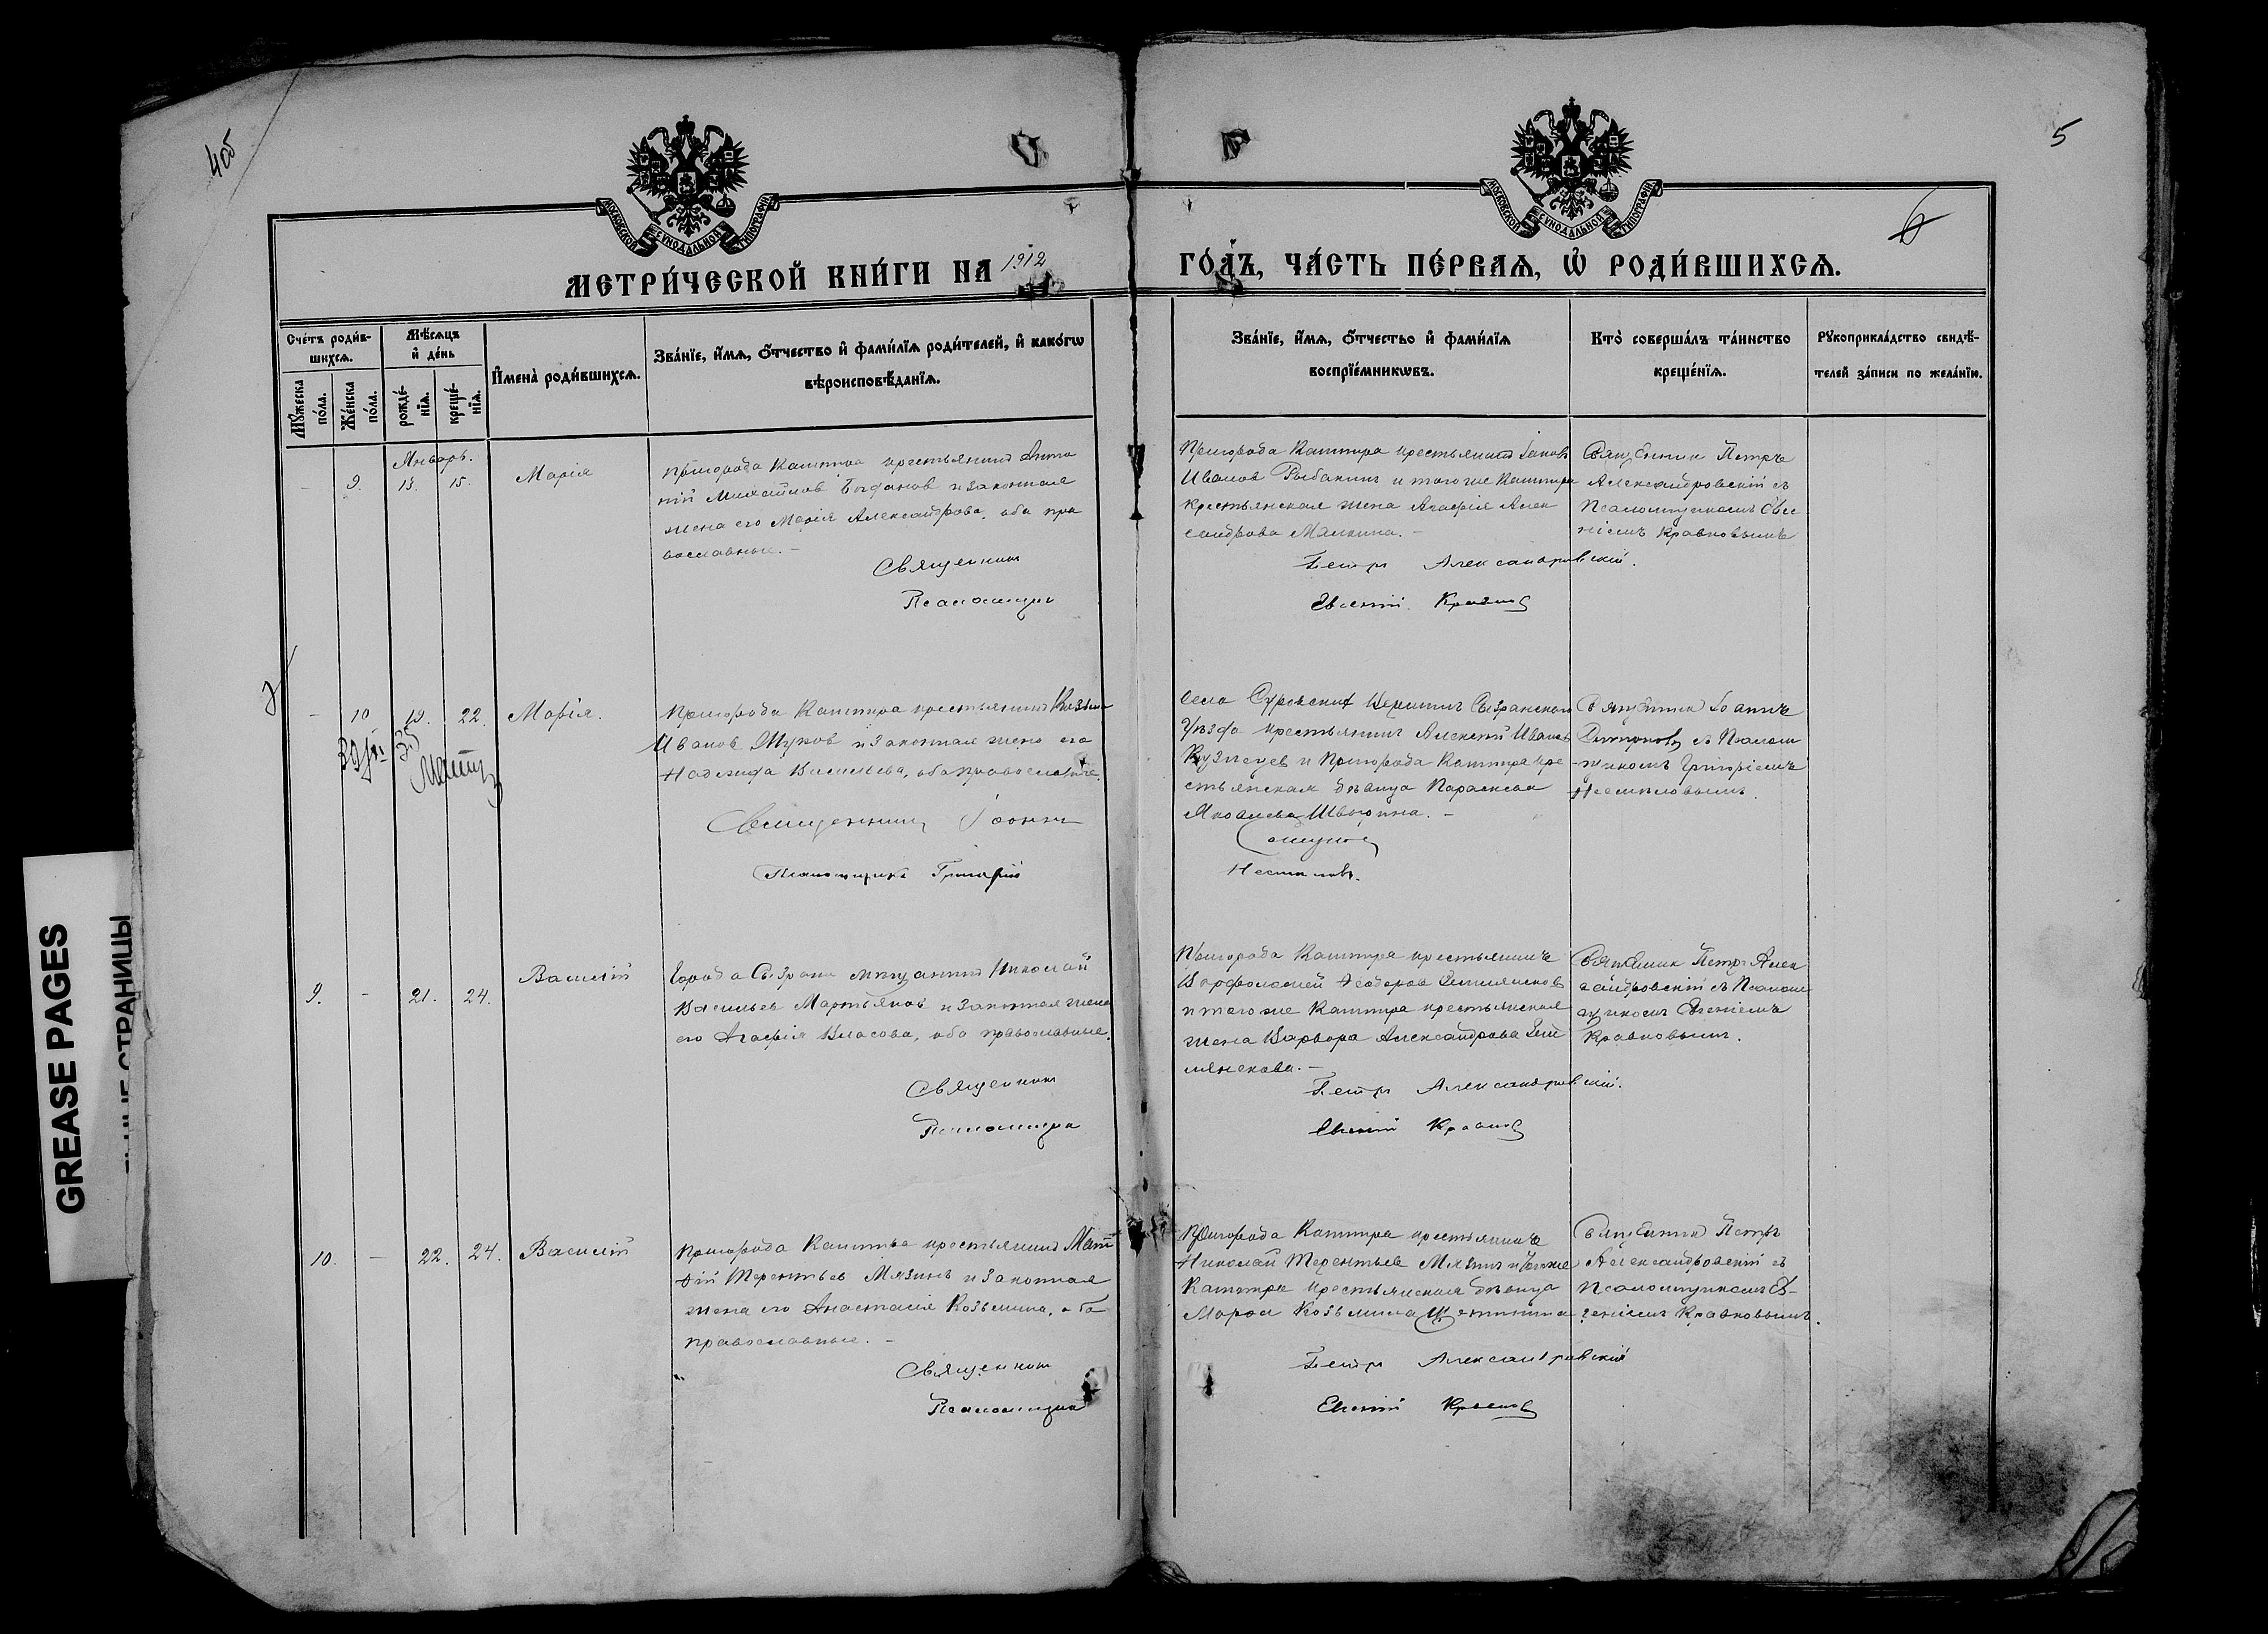 4об
5
6
МОСКОВСКОЙ СѴНОДАЛЬНОЙ ТИПОГРАФІИ
МОСКОВСКОЙ СѴНОДАЛЬНОЙ ТИПОГРАФІИ
МЕТРИ́ЧЕСКОЙ КНИ́ГИ НА 1912
ГО́ДЪ, ЧА́СТЬ ПЕ́РВАѦ, Ѡ҆ РОДИ́ВШИХСѦ.
Сче́тъ роди́в-
шихсѧ.
Мѣ́сѧцъ
и҆ де́нь
Мꙋ́жеска
по́ла.
Же́нска
по́ла.
рожде́-
нїѧ.
креще́-
нїѧ.
И҆мена̀ роди́вшихсѧ.
Зва́нїе, и҆́мѧ, ѻ҆́тчество и҆ фами́лїѧ роди́телей, и҆ како́гѡ
вѣроисповѣ́данїѧ.
Зва́нїе, и҆́мѧ, ѻ҆́тчество и҆ фами́лїѧ
воспрїе́мникѡвъ.
Кто̀ соверша́лъ та́инство
креще́нїѧ.
Рꙋкоприкла́дство свидѣ́-
телей за́писи по жела́нїю.
Январь.
9. 13. 15. Марія
Пригорода Кашпира крестьянинъ Анто
ній Михайловъ и законная
жена его Марія Александрова, оба пра
вославные. –
Священникъ
Псаломщик
Пригорода Кашпира крестьянинъ Іаковъ
Ивановъ Рыбакинъ и того же Кашпира
крестьянская жена Агафія Алек
сандрова Мамкина. –
Петръ Александровскій.
Евгеній Кравковъ
Священникъ Петръ
Александровскій съ
Псаломщикомъ Евге
ніемъ Кравковымъ
– 10 19. 22. Марія.
Пригорода Кашпира крестьянинъ Козьма
Ивановъ Жуковъ и законная жена его
Надежда Васильева, оба православные.
Священникъ Іоаннъ
Псаломщикъ Григорій
Села Суринскихъ Сызранскаго
Уѣзда крестьянинъ Алексѣй Ивановъ
Кузнецовъ и Пригорода Кашпира кре
стьянская дѣвица Параскева
Яковлева
Священникъ Іоаннъ
съ Псалом
щикомъ Григоріемъ
9. – 21. 24. Василій
Города Сызрани мѣщанинъ Николай
Васильевъ Мартьяновъ и законная жена
его Агафія Власова, оба православные.
Священникъ
Псаломщик
Пригорода Кашпира крестьянинъ
Варфоломей Ѳеодоровъ Землянсковъ
и того же Кашпира крестьянская
жена Варвара Александрова Зем
лянскова. –
Петръ Александровскій.
Евгеній Кравковъ
Священникъ Петръ Алек
сандровскій съ Псалом
щикомъ Евгеніемъ
Кравковымъ.
10. – 22. 24. Василій
Пригорода Кашпира крестьянинъ Мат
ѳій Терентьевъ Мязинъ и законная
жена его Анастасія Козьмина, оба
православные. –
Священникъ
Псаломщик
Пригорода Кашпира крестьянинъ
Николай Терентьевъ Мязинъ и того же
Кашпира крестьянская дѣвица
Марѳа Козьмина
Петръ Александровскій
Евгеній Кравковъ
Священникъ Петръ
Александровскій съ
Псаломщикомъ Ев-
геніемъ Кравковымъ.
GREASE PAGES
СТРАНИЦЫ